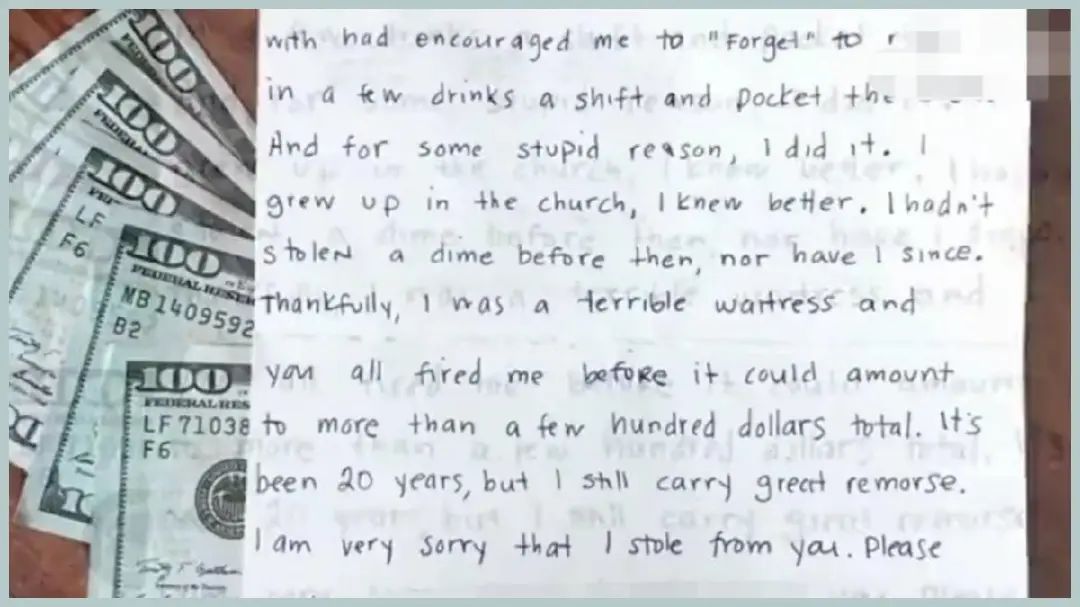 with had encouraged me to "Forget" to
in a few drinks a shift and pocket
And for some stupid reason, I did it. I
grew up in the church, I knew better. I hadn't
stolen a dime before then, nor have I since.
Thankfully, I was a terrible waitress and
you all fired me before it could amount
to more than a few hundred dollars total. It's
been 20 years, but I still carry great remorse.
I am very sorry that I stole from you. Please
100
FEDERAL
100
FEDERAL
100
LF
F6
100
FEDERAL RESERVE
MB1409592
B2
100
FEDERAL RES
LF71038
F6